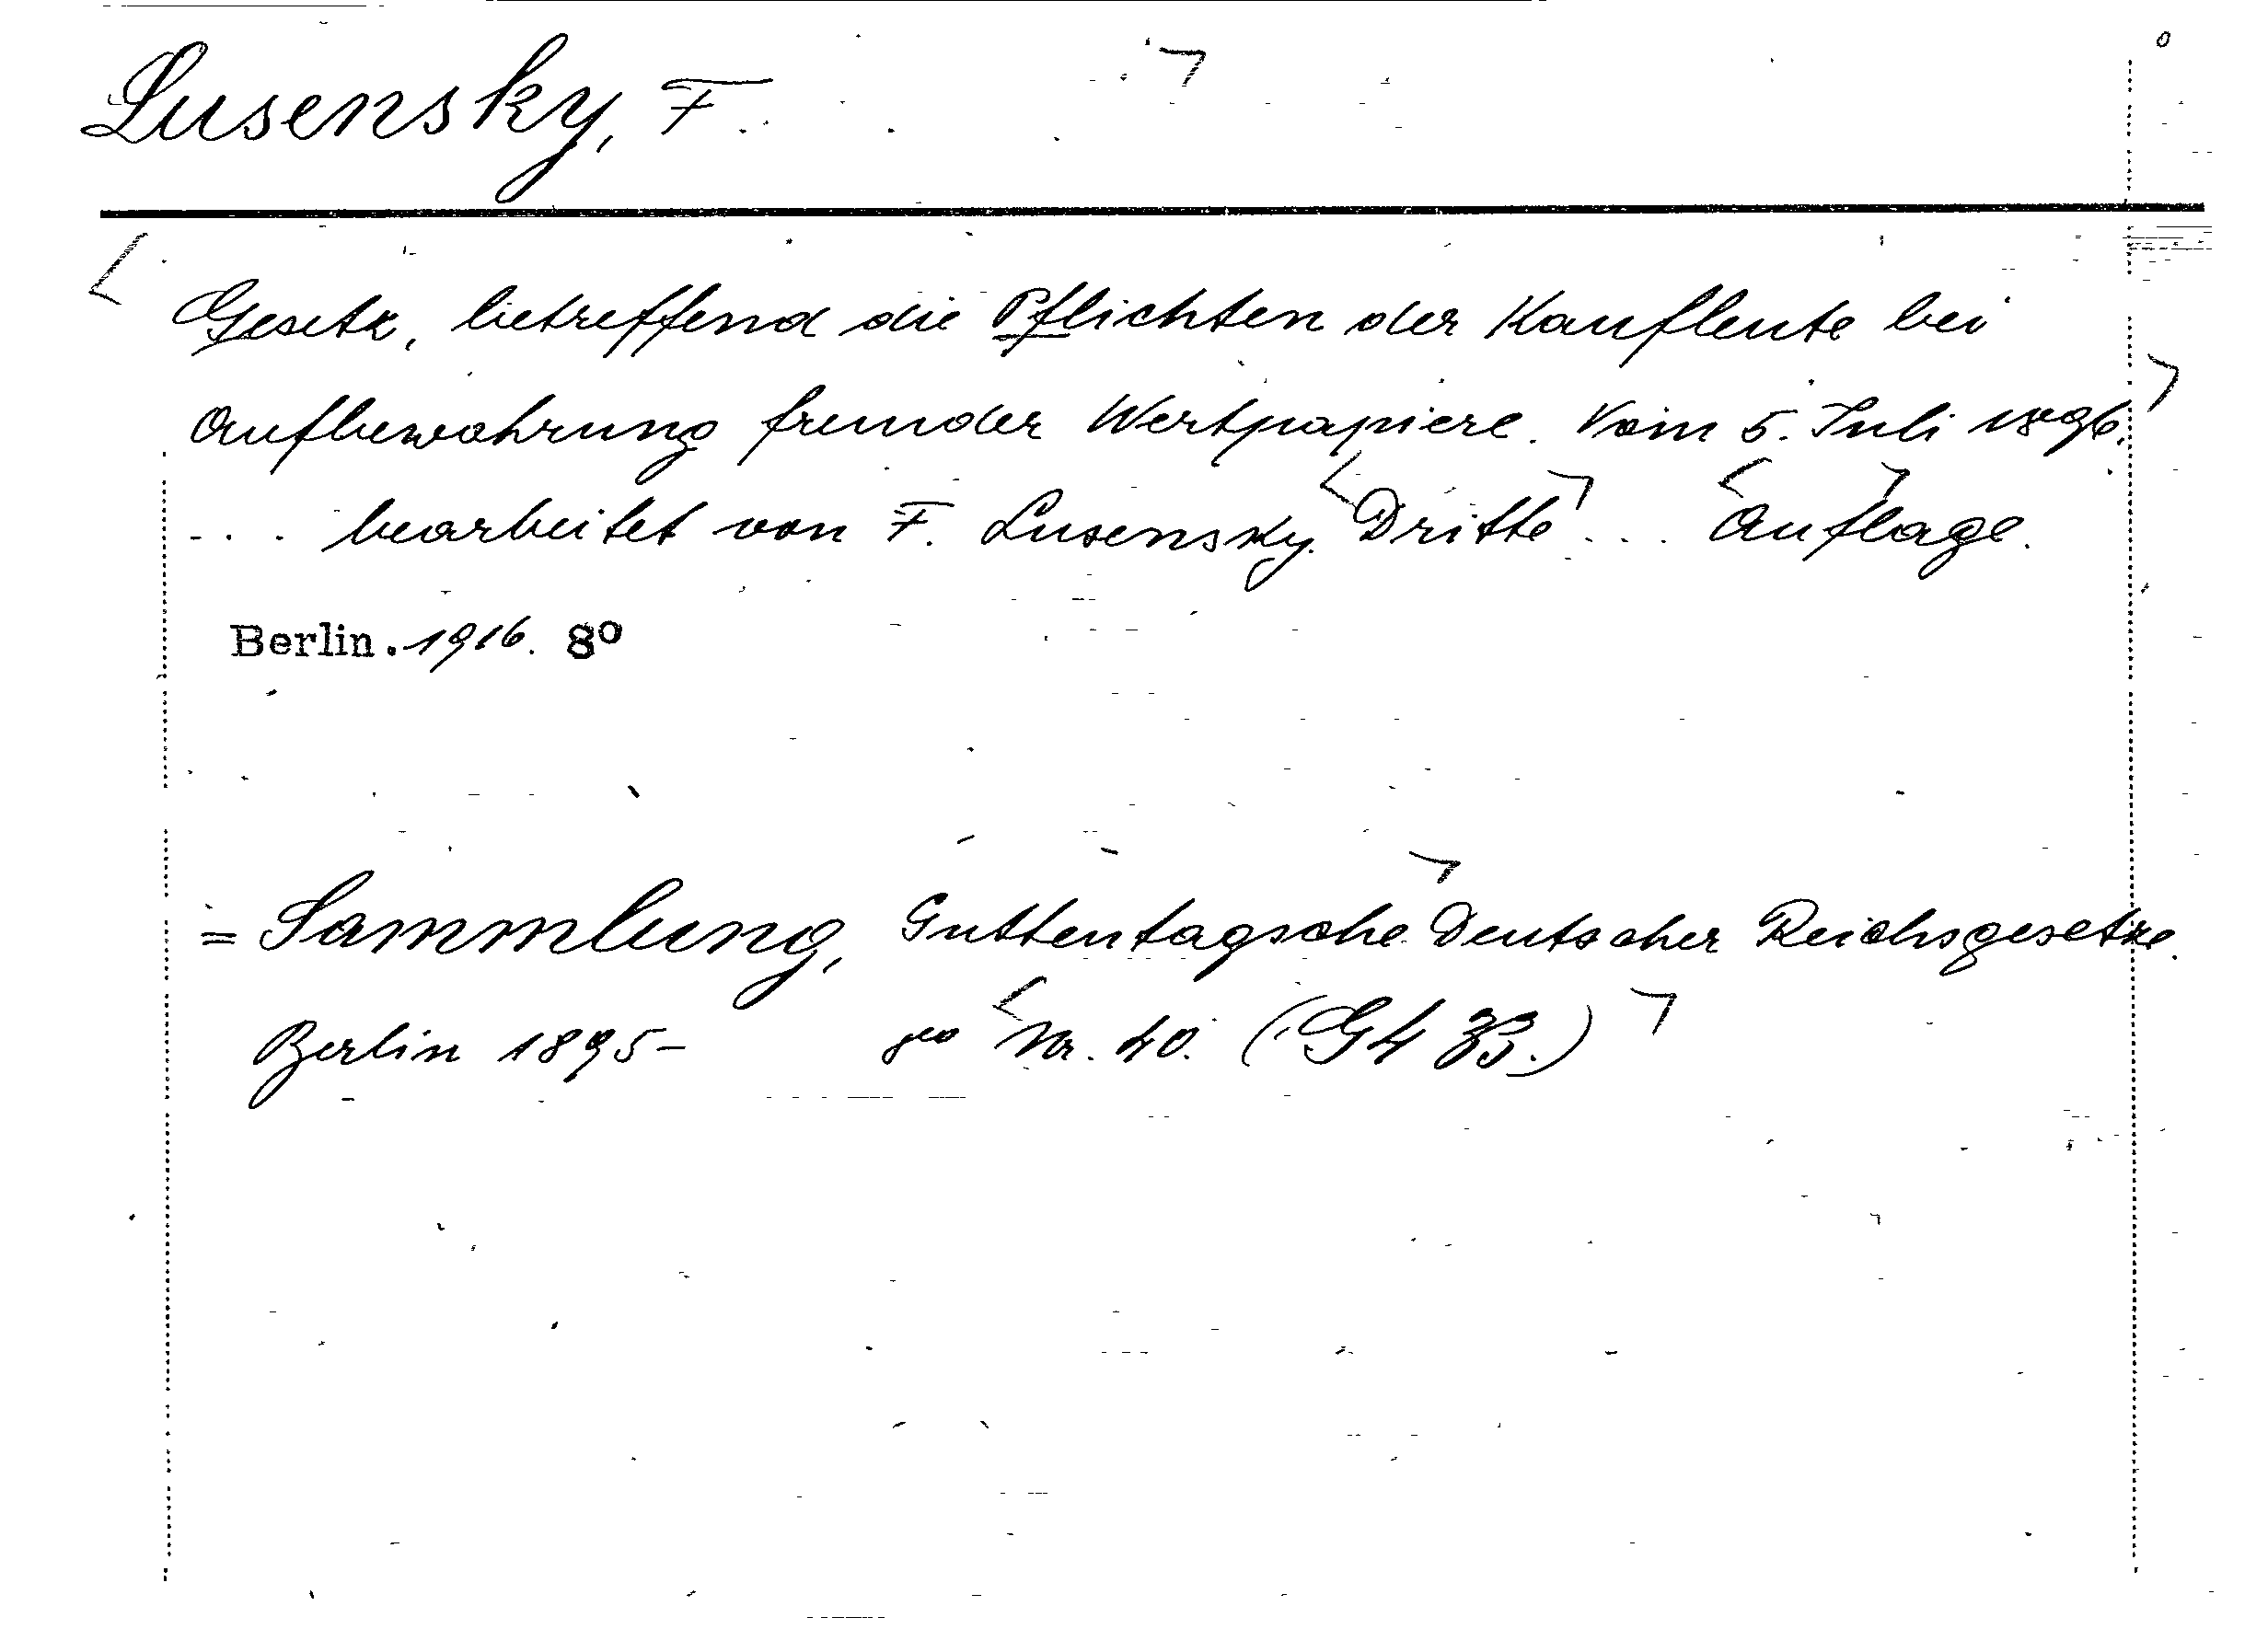 Lusensky, F.
Gesetz, betreffend die Pflichten der Kaufleute bei
Aufbewahrung fremder Wertpapiere. Vom 5. Juli 1896.
... bearbeitet von F. Lusensky. Dritte ... Auflage.
Berlin. 1916. 8°
= Sammlung, Guttentagsche Deutscher Reichsgesetze.
Berlin 1895- Nr. 40. (G4